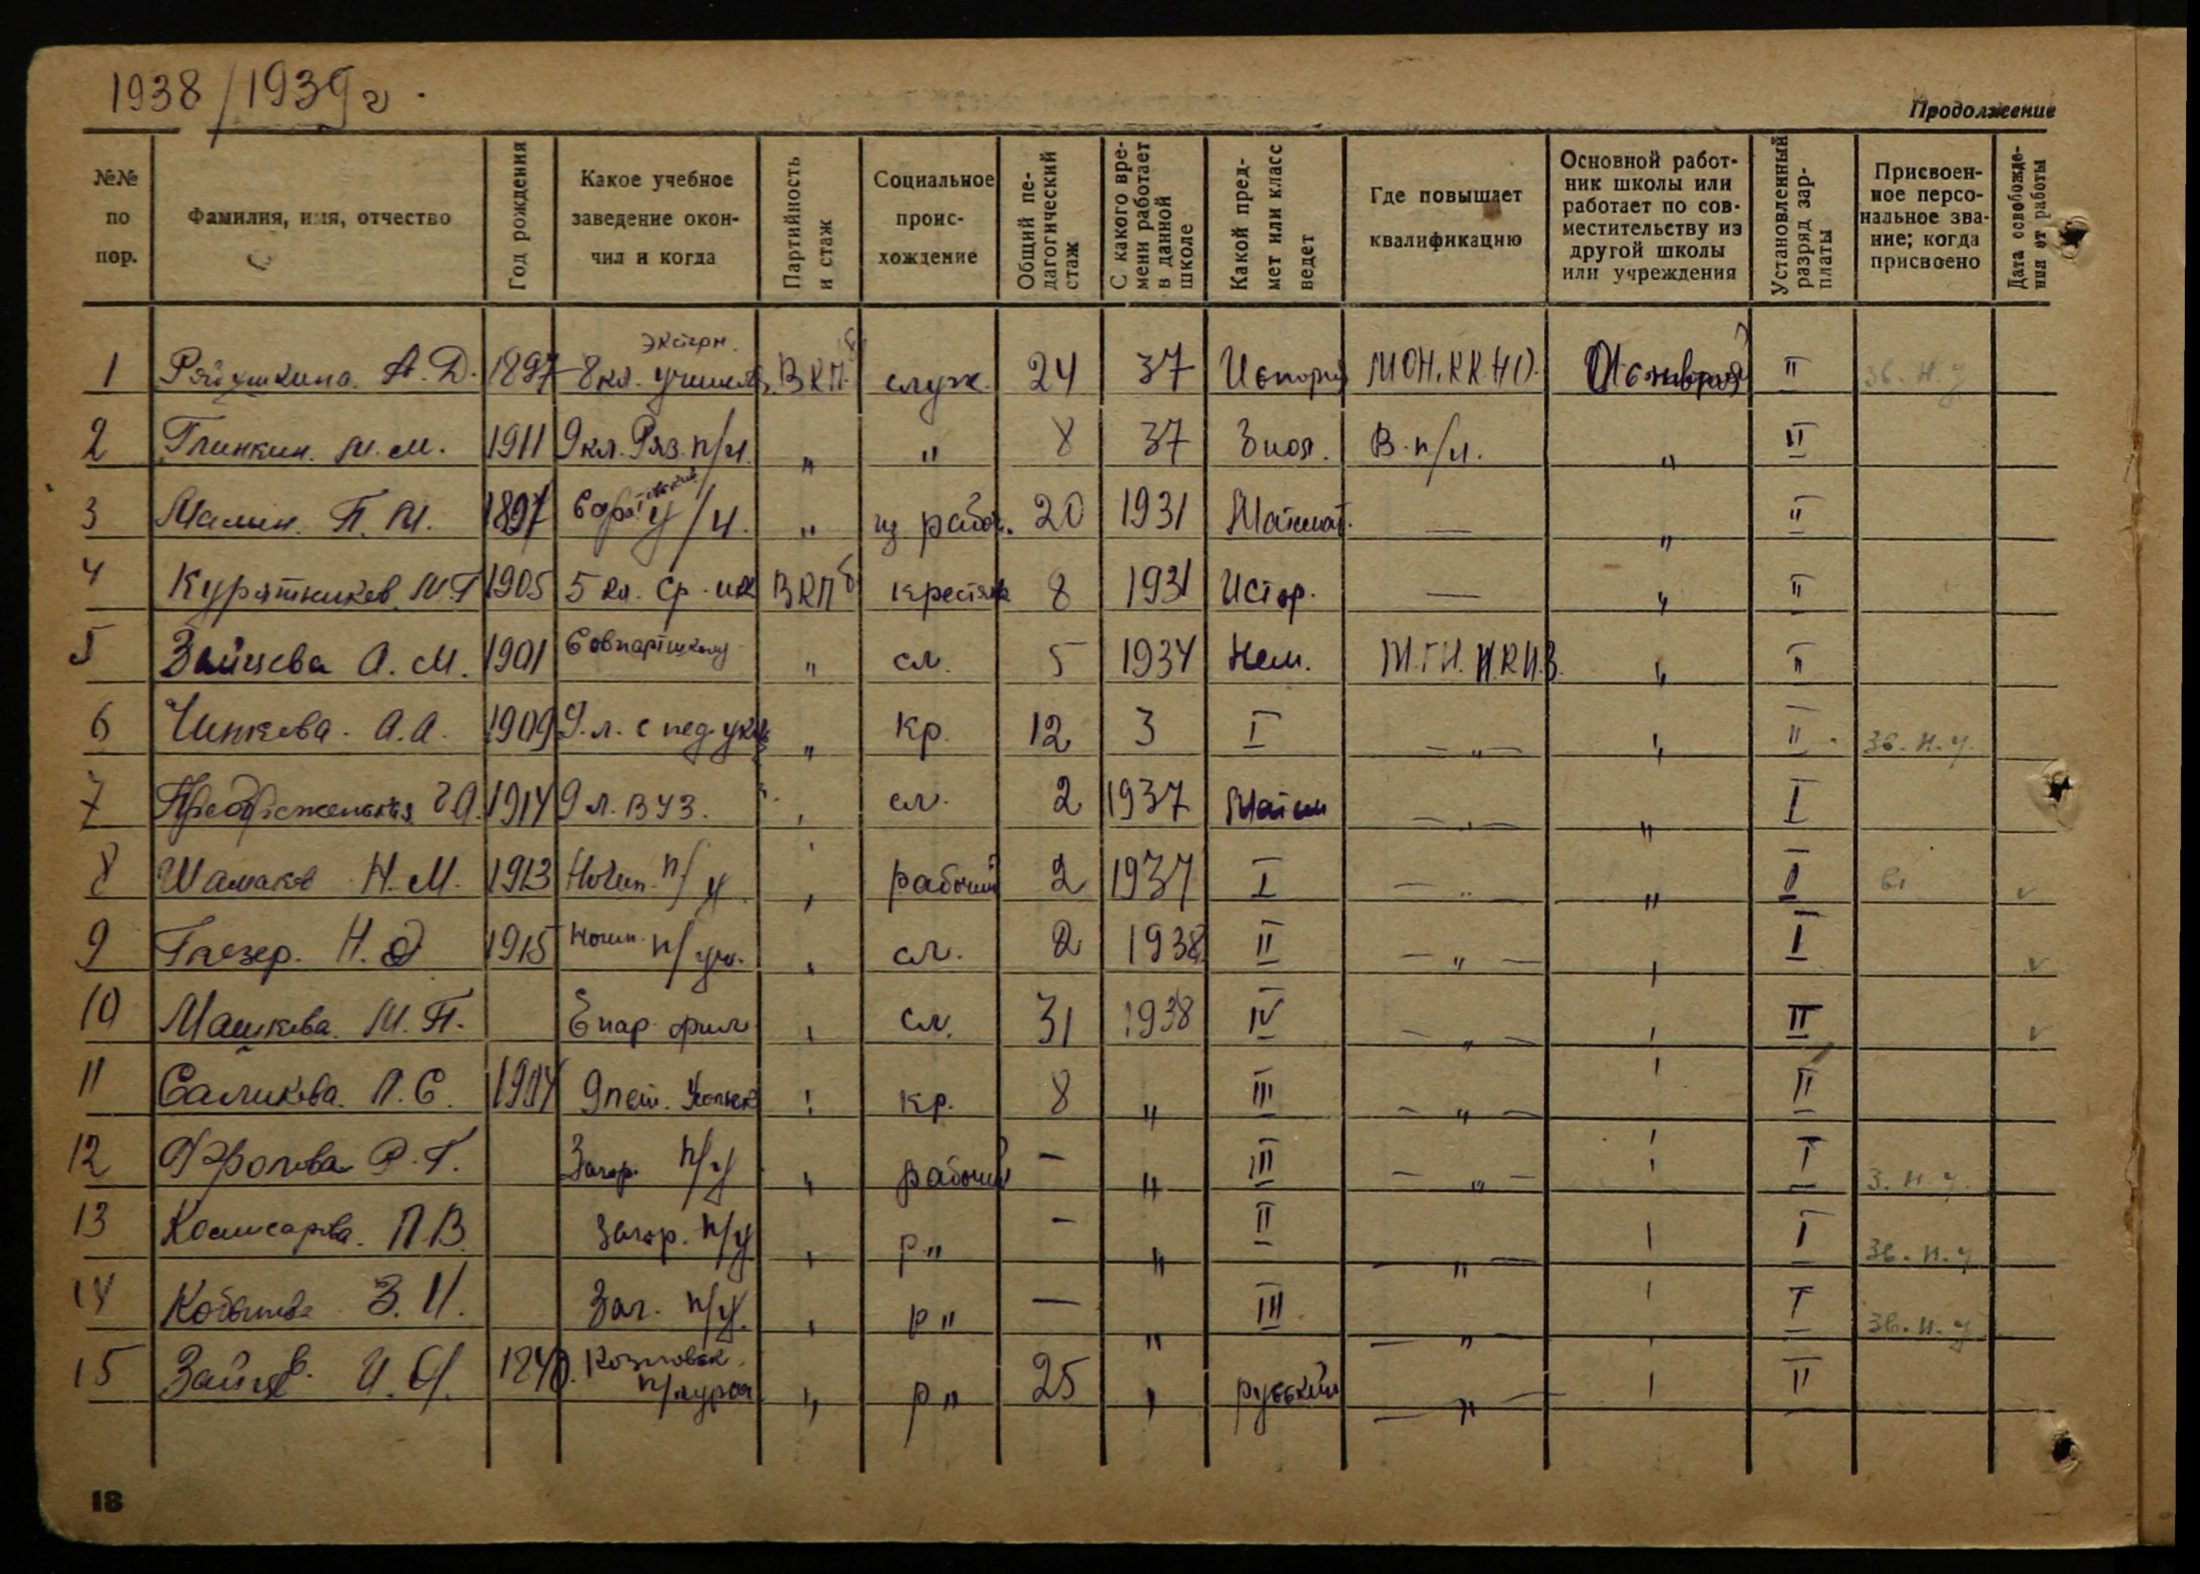 1938/1939 г.
Продолжение
№№ по пор.
Фамилия, имя, отчество
Год рождения
Какое учебное заведение окончил и когда
Партийность и стаж
Социальное происхождение
Общий педагогический стаж
С какого времени работает в данной школе
Какой предмет или класс ведет
Где повышает квалификацию
Основной работник школы или работает по совместительству из другой школы или учреждения
Установленный разряд зарплаты
Присвоенное персональное звание; когда присвоено
Дата освобождения от работы
1 А. Д. 1897 экстерн. 8 кл. ВКП служ. 24 37 II Зв. н. у
2 Глинкин. М. М. 1911 9 кл. Ряз. п/и. „ „ 8 37 Зоол. В. п/и. „ II
3 Малин. П. И. 1897 „ из рабоч. 20 1931 Математ. — „ II
4 Курятников М. Г. 1905 5 кл. ср. шк ВКПб крестьян 8 1931 Истор. — „ II
5 Зайцева А. М. 1901 Совпартшколу „ сл. 5 1934 Нем. „ II
6 А. А. 1909 9 л. с пед. укл „ кр. 12 3 I — „ — „ II Зв. н. у.
7 Преображенская 1914 9 л. ВУЗ. „ сл. 2 1937 Матем — „ — „ I
8 Шамаков Н. М. 1913 п/у „ рабочий 2 1937 I — „ „ I
9 Глезер. Н. 1915 п/уч. „ сл. 2 1938 II — „ — „ I
10 Машкова М. П. Епар. фил „ сл. 31 1938 IV — „ — „ II
11 Саликова. П. С. 1904 9 лет. „ кр. 8 „ III — „ — „ II
12 Фролова Р. Г. Загор. п/у „ рабочий — „ III — „ — „ I З. н. у.
13 Комисарова. П. В. Загор. п/у „ р „ — „ II — „ — „ I Зв. н. у
14 З. И. Заг. п/у. „ р „ — „ III — „ — „ I Зв. н. у
15 Зайцев. И. Козловск. п/курсы „ р „ 25 „ русский — „ — „ II
18